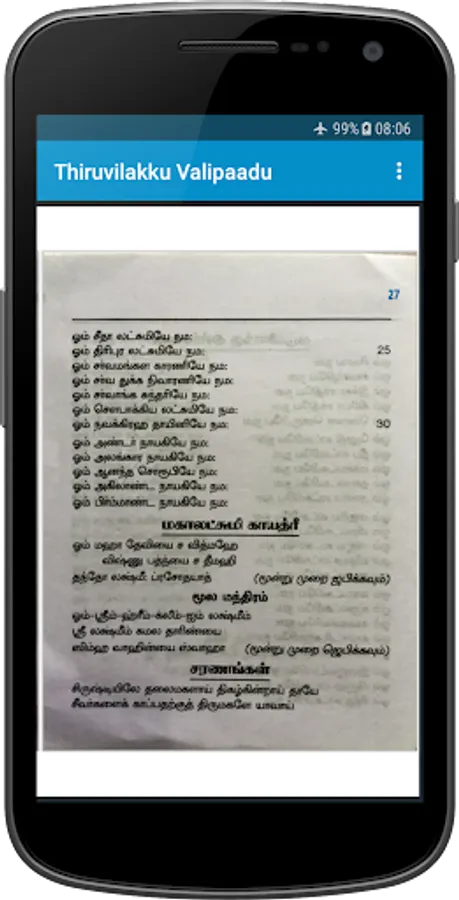 99% 08:06
Thiruvilakku Valipaadu
27
ஓம் சீதா லட்சுமியே நம:
ஓம் திரிபுர லட்சுமியே நம: 25
ஓம் சர்வமங்கள காரணியே நம:
ஓம் சர்வ துக்க நிவாரணியே நம:
ஓம் சர்வாங்க சுந்தரியே நம:
ஓம் சௌபாக்கிய லட்சுமியே நம:
ஓம் நவக்கிரஹ தாயினியே நம: 30
ஓம் அண்டர் நாயகியே நம:
ஓம் அலங்கார நாயகியே நம:
ஓம் ஆனந்த சொரூபியே நம:
ஓம் அகிலாண்ட நாயகியே நம:
ஓம் பிரம்மாண்ட நாயகியே நம:
மகாலட்சுமி காயத்ரீ
ஓம் மஹா தேவியை ச வித்மஹே
விஷ்ணு பத்ந்யை ச தீமஹி
தந்தோ லக்ஷ்மீ: ப்ரசோதயாத் (மூன்று முறை ஜபிக்கவும்)
மூல மந்திரம்
ஓம்-ஸ்ரீம்-ஹ்ரீம்-க்லீம்-ஐம் லக்ஷ்மீம்
ஸ்ரீ லக்ஷ்மீம் கமல தாரிண்யை
ஸிம்ஹ வாஹின்யை ஸ்வாஹா (மூன்று முறை ஜெபிக்கவும்)
சரணங்கள்
சிருஷ்டியிலே தலைமகளாய் திகழ்கின்றாய் தாயே
சீவர்களைக் காப்பதற்குத் திருமகளே யாவாய்